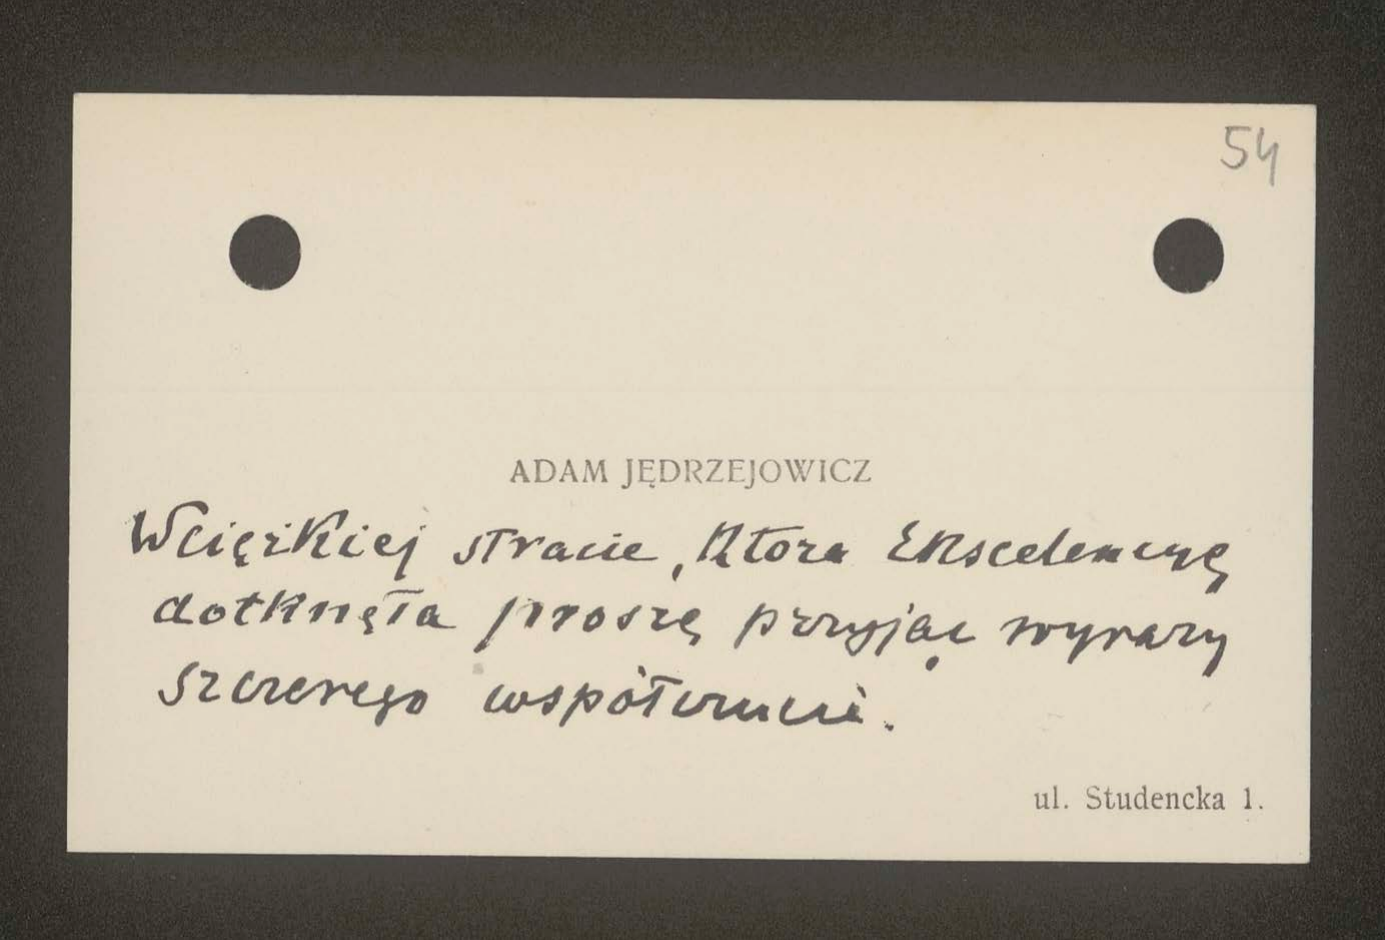 54
ADAM JĘDRZEJOWICZ
W ciężkiej stracie, która Ekscelencyę
dotknęła proszę przyjąć wyrazy
szczerego współczucia.
ul. Studencka 1.